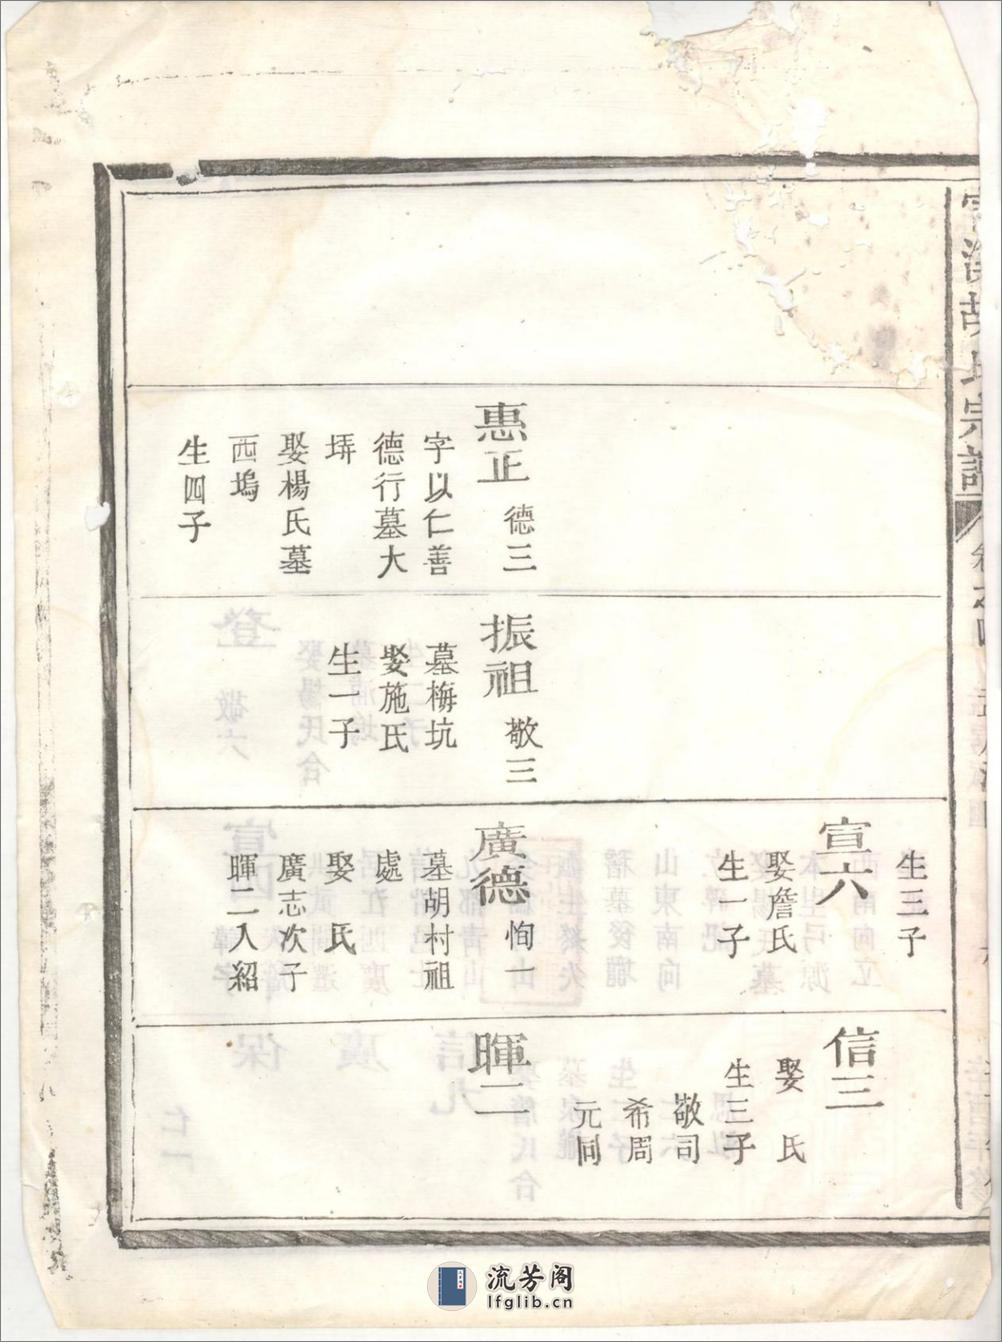 胡氏宗譜
卷之四
惠正 德三
字以仁善
德行墓大
塀
娶楊氏墓
西塢
生四子
振祖 敬三
墓梅坑
娶施氏
生一子
生三子
宣六
娶詹氏
生一子
廣德 恂一
墓胡村祖
處
娶 氏
廣志次子
暉二入紹
信三
娶 氏
生三子
敬司
希周
元同
暉二
流芳阁
lfglib.cn